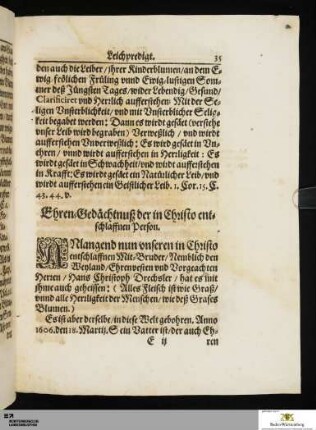 Leichpredigt. 35
den auch die Leiber/ihrer Kinderblumen/an dem E-
wig frölichen Früling vnnd Ewig-lustigen Som-
mer deß Jüngsten Tages/wider Lebendig/Gesund/
Clarificiret vnd Herrlich aufferstehen Mit der Se-
ligen Vnsterblichkeit/vnd mit Vnsterblicher Selig-
keit begabet werden: Dann es wird gesäet (verstehe
vnser Leib wird begraben) Verweßlich/vnd wirdt
aufferstehen Vnverweßlich: Es wird gesäet in Vn-
ehren/vnnd wirdt aufferstehen in Herrligkeit: Es
wirdt gesäet in Schwachheit/vnd wirdt aufferstehen
in Krafft: Es wirdt gesäet ein Natürlicher Leib/vnd
wirdt aufferstehen ein Geistlicher Leib. 1. Cor. 15. C.
43. 44. v.
Ehren-Gedächtnuß der in Christo ent-
schlaffnen Person.
ANlangend nun vnseren in Christo
entschlaffnen Mit-Bruder/Nemblich den
Weyland/Ehrnvesten vnd Vorgeachten
Herren/Hans Christoph Drechsler/hat es mit
ihme auch geheissen: (Alles Fleisch ist wie Graß/
vnnd alle Herrligkeit der Menschen/wie deß Grases
Blumen.)
Es ist aber derselbe/in diese Welt gebohren. Anno
1606. den 18. Martij. Sein Vatter ist/der auch Eh-
E ij ren
WÜRTTEMBERGISCHE
LANDESBIBLIOTHEK
Baden-Württemberg